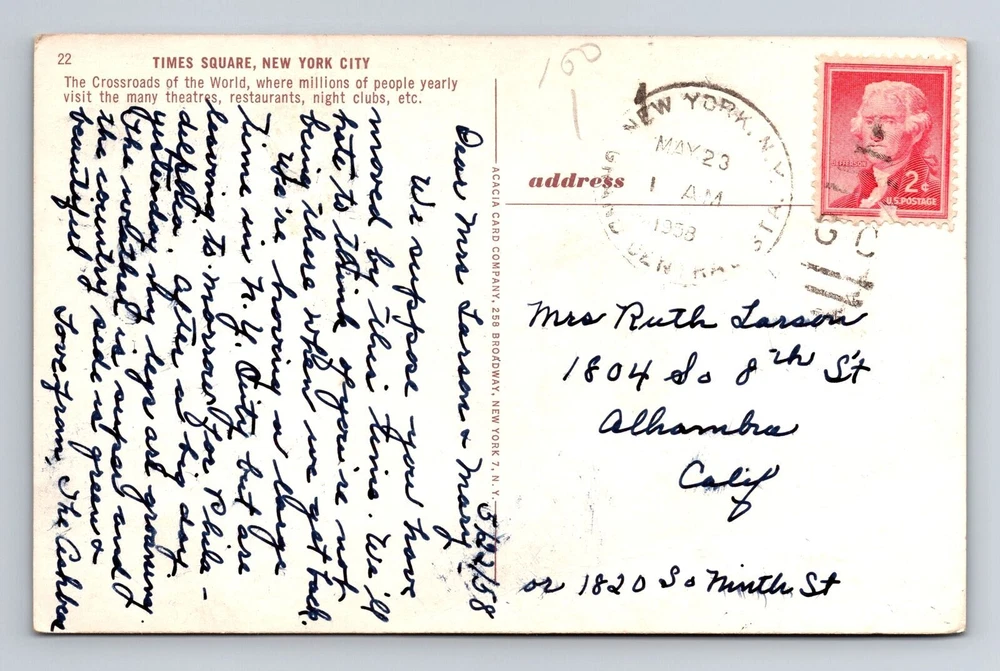 22
TIMES SQUARE, NEW YORK CITY
The Crossroads of the World, where millions of people yearly
visit the many theatres, restaurants, night clubs, etc.
5/22/58
Dear Mrs Larson & Mary
We suppose you have
moved by this time. We'll
hate to think of you're not
being there when we get back.
We're having a large
time in N.Y. City but are
leaving to-morrow for Phila-
delphia. After a big day
yesterday my legs are groaning
The weather is super and
the country side is green &
beautiful
Love from, The
ACACIA CARD COMPANY, 258 BROADWAY, NEW YORK 7, N. Y.
100
1
address
NEW YORK, N.Y.
MAY 23
1 AM
1958
GRAND CENTRAL STA.
JEFFERSON
2¢
U.S. POSTAGE
Mrs Ruth Larson
1804 So 8th St
Alhambra
Calif
or 1820 So Ninth St